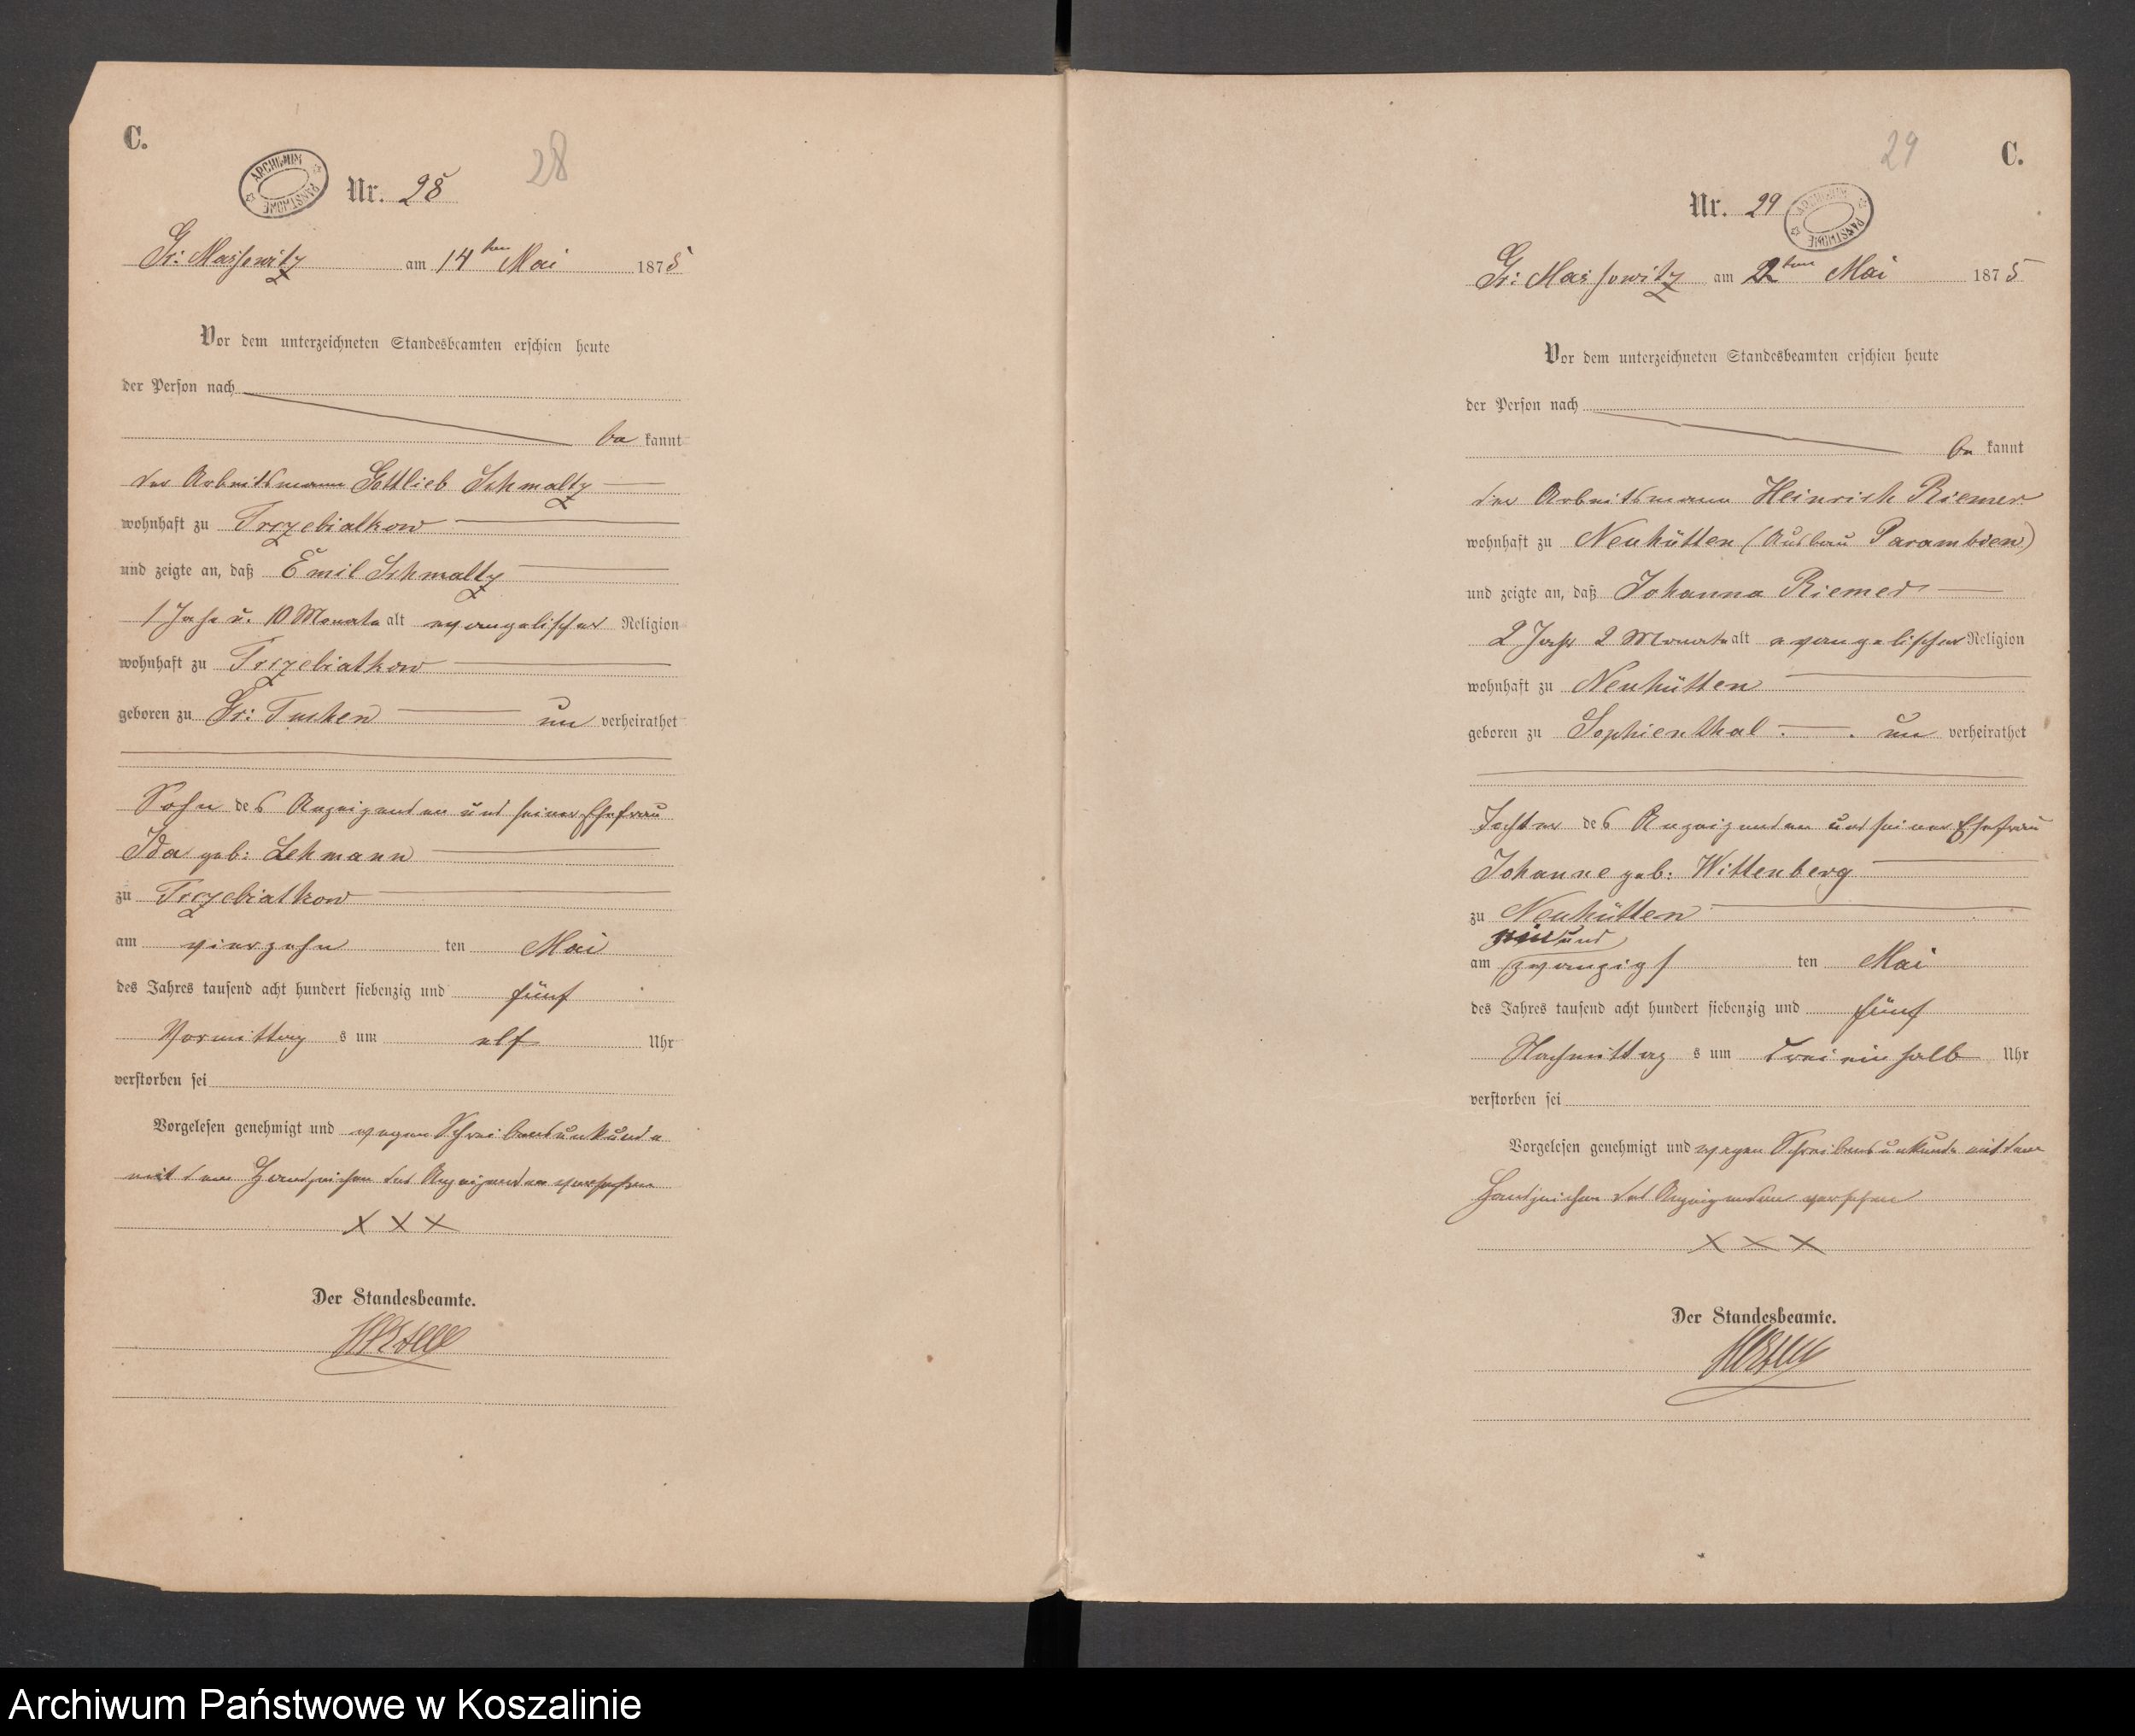 C.
ARCHIWUM PAŃSTWOWE
28
Nr. 28
Gr: Massowitz am 14ten Mai 1875
Vor dem unterzeichneten Standesbeamten erschien heute
der Person nach
be kannt
der Arbeitsmann Gottlieb Schmaltz
wohnhaft zu Trzebiatkow
und zeigte an, daß Emil Schmaltz
1 Jahr u. 10 Monate alt evangelischer Religion
wohnhaft zu Trzebiatkow
geboren zu Gr: Tuchen un verheirathet
Sohn des Anzeigenden und seiner Ehefrau
Ida geb: Lehmann
zu Trzebiatkow
am vierzehn ten Mai
des Jahres tausend acht hundert siebenzig und fünf
Vormittag s um elf Uhr
verstorben sei
Vorgelesen genehmigt und wegen Schreibensunkunde
mit dem Handzeichen des Anzeigenden versehen
X X X
Der Standesbeamte.
29
C.
Nr. 29
ARCHIWUM PAŃSTWOWE
Gr: Massowitz am ten Mai 1875
Vor dem unterzeichneten Standesbeamten erschien heute
der Person nach
be kannt
der Arbeitsmann Heinrich Riemer
wohnhaft zu Neuhütten (Ausbau Parambien)
und zeigte an, daß Johanna Riemer
2 Jahr 2 Monate alt evangelischer Religion
wohnhaft zu Neuhütten
geboren zu Sophienthal un verheirathet
Tochter des Anzeigenden und seiner Ehefrau
Johanne geb: Wittenberg
zu Neuhütten
ein und
am zwanzigs ten Mai
des Jahres tausend acht hundert siebenzig und fünf
Nachmittag s um drei ein halb Uhr
verstorben sei
Vorgelesen genehmigt und wegen Schreibensunkunde mit dem
Handzeichen des Anzeigenden versehen
X X X
Der Standesbeamte.
Archiwum Państwowe w Koszalinie